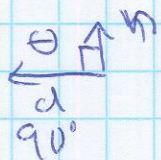 θ n
d
90°